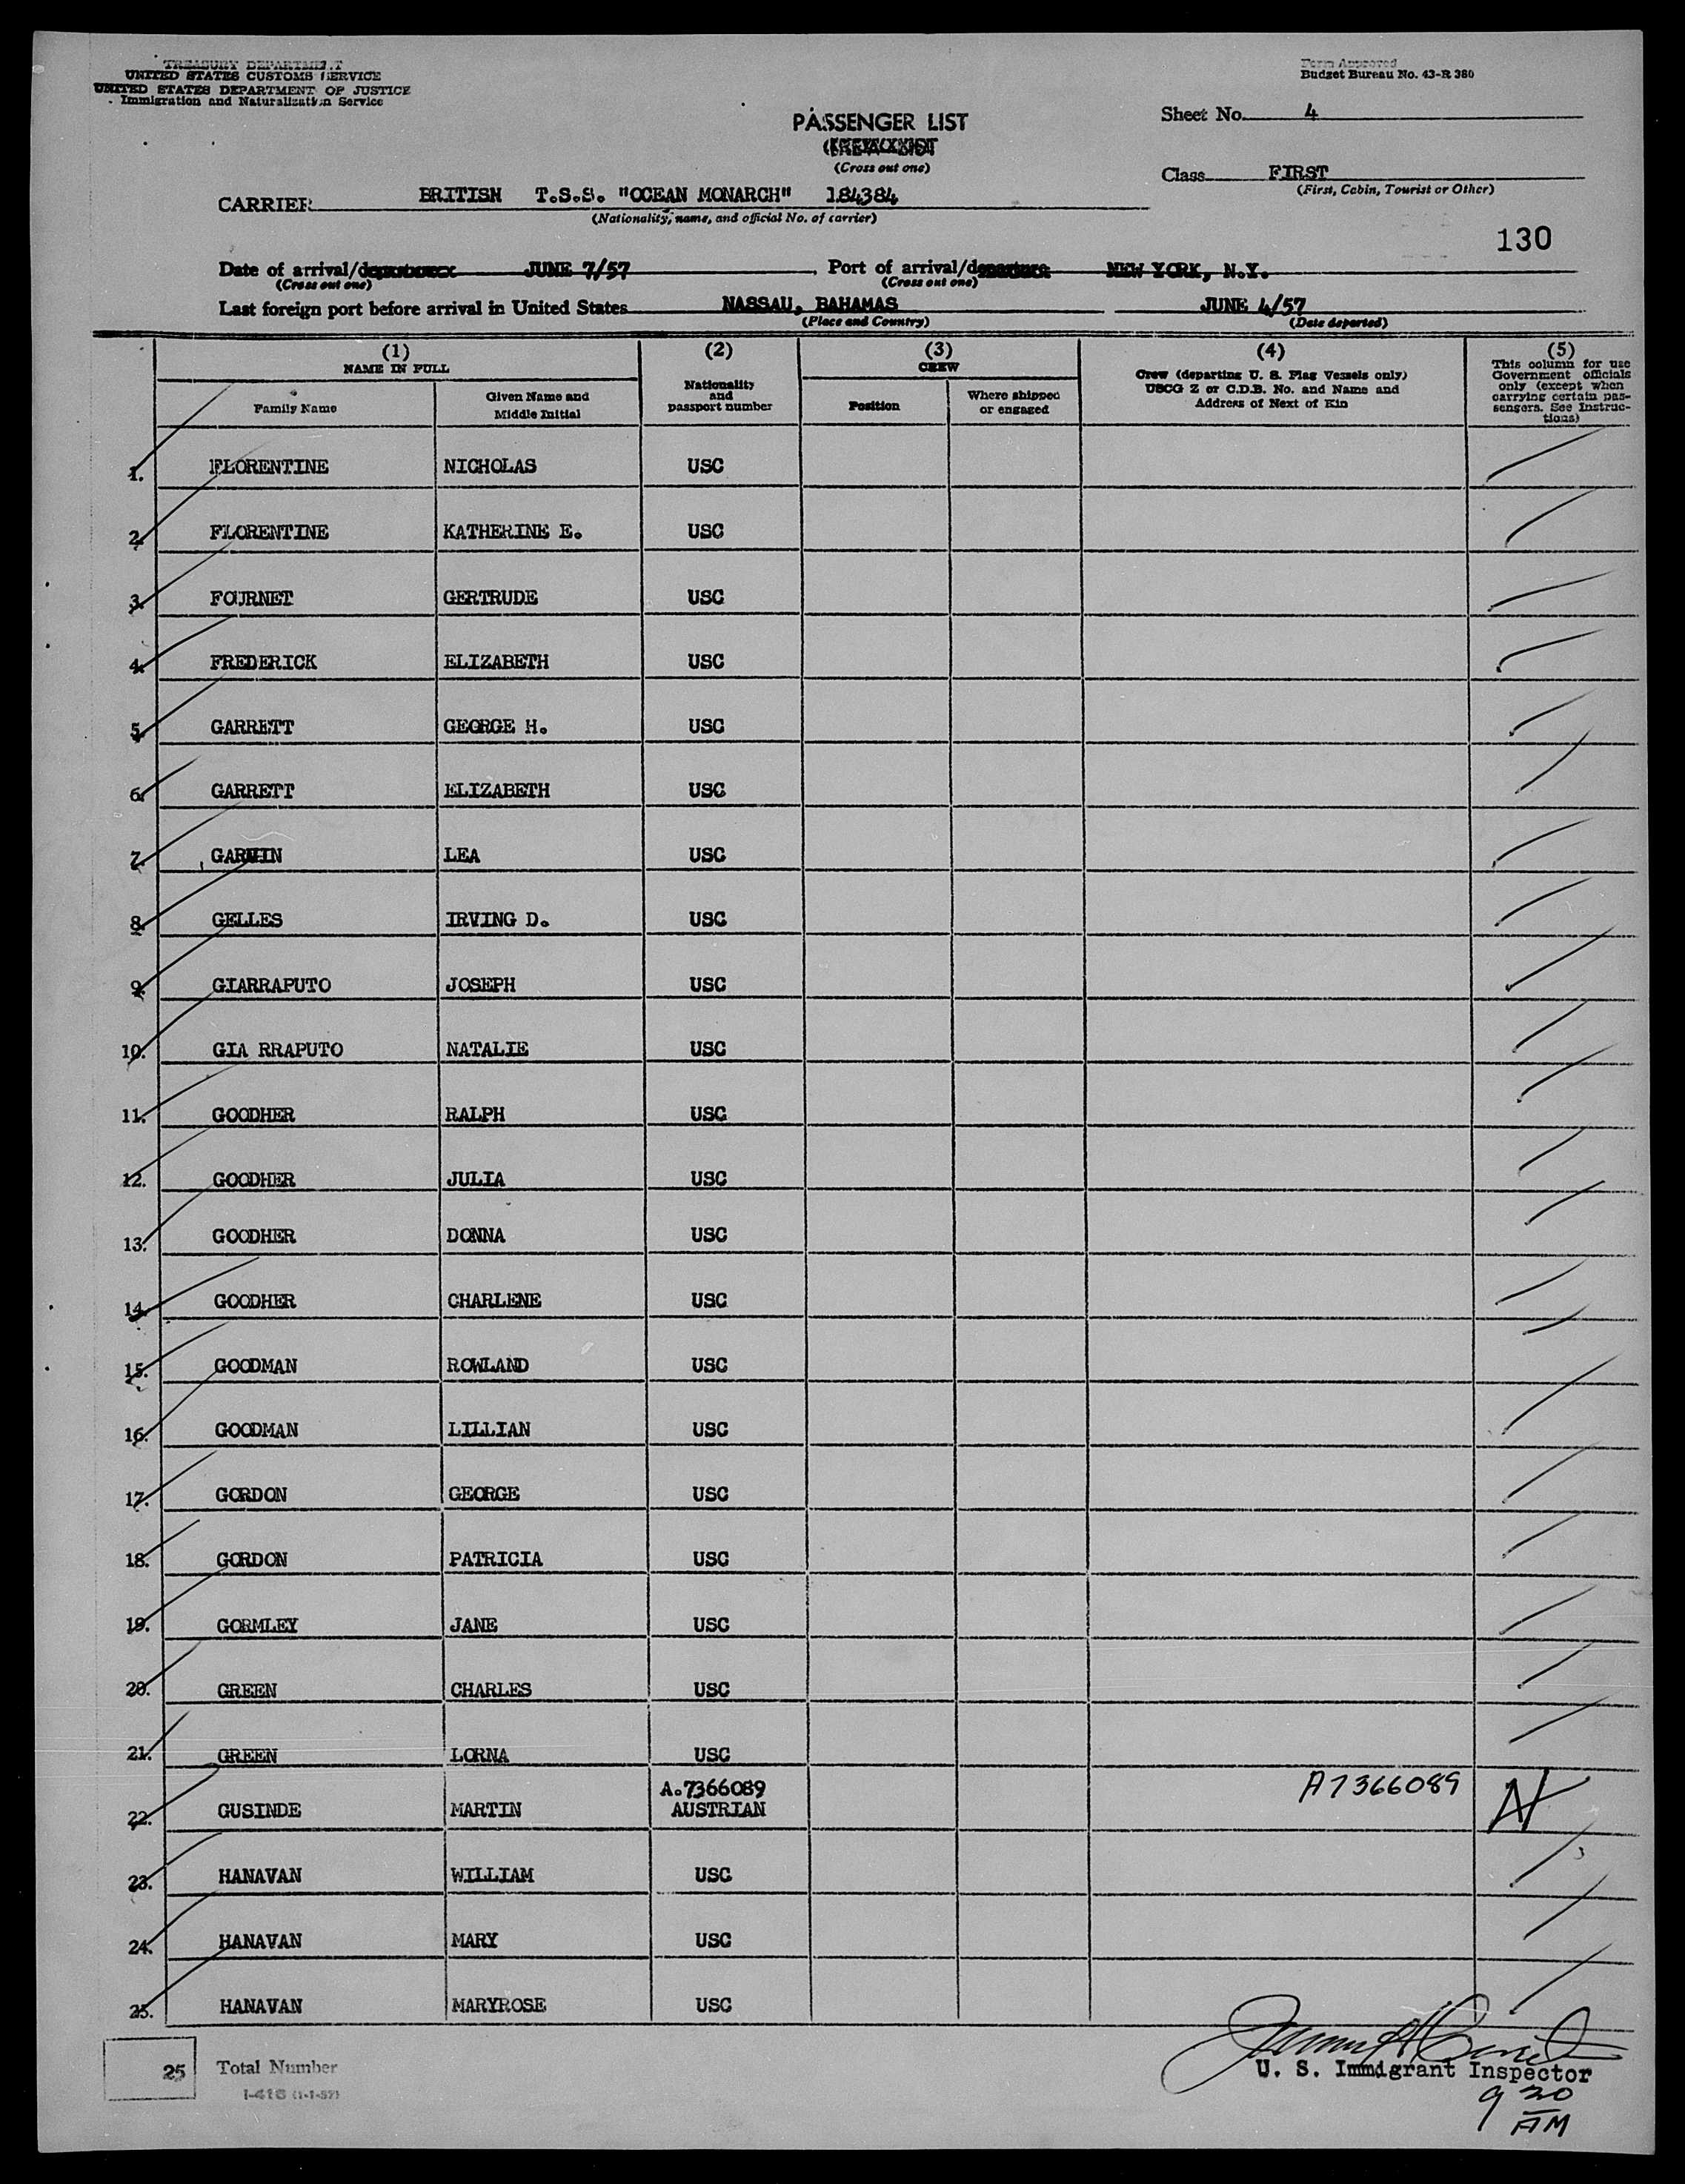 TREASURY DEPARTMENT
UNITED STATES CUSTOMS SERVICE
UNITED STATES DEPARTMENT OF JUSTICE
Immigration and Naturalization Service
Form Approved
Budget Bureau No. 43-R 380
PASSENGER LIST
(Cross out one)
Sheet No. 4
Class FIRST
(First, Cabin, Tourist or Other)
CARRIER BRITISH T.S.S. "OCEAN MONARCH" 184384
(Nationality, name, and official No. of carrier)
130
Date of arrival/departure JUNE 7/57, Port of arrival/departure NEW YORK, N.Y.
(Cross out one) (Cross out one)
Last foreign port before arrival in United States NASSAU, BAHAMAS JUNE 4/57
(Place and Country) (Date departed)
(1) (2) (3) (4) (5)
NAME IN FULL
Family Name
Given Name and
Middle Initial
Nationality
and
passport number
CREW
Position
Where shipped
or engaged
Crew (departing U. S. Flag Vessels only)
USCG Z or C.D.B. No. and Name and
Address of Next of Kin
This column for use
Government officials
only (except when
carrying certain pas-
sengers. See Instruc-
tions)
1. FLORENTINE NICHOLAS USC
2. FLORENTINE KATHERINE E. USC
3. FOURNET GERTRUDE USC
4. FREDERICK ELIZABETH USC
5. GARRETT GEORGE H. USC
6. GARRETT ELIZABETH USC
7. LEA USC
8. GELLES IRVING D. USC
9. GIARRAPUTO JOSEPH USC
10. GIA RRAPUTO NATALIE USC
11. GOODHER RALPH USC
12. GOODHER JULIA USC
13. GOODHER DONNA USC
14. GOODHER CHARLENE USC
15. GOODMAN ROWLAND USC
16. GOODMAN LILLIAN USC
17. GORDON GEORGE USC
18. GORDON PATRICIA USC
19. GORMLEY JANE USC
20. GREEN CHARLES USC
21. GREEN LORNA USC
A.7366089 A7366089
22. GUSINDE MARTIN AUSTRIAN
23. HANAVAN WILLIAM USC
24. HANAVAN MARY USC
25. HANAVAN MARYROSE USC
25 Total Number
I-418 (1-1-57)
U. S. Immigrant Inspector
9 20
AM